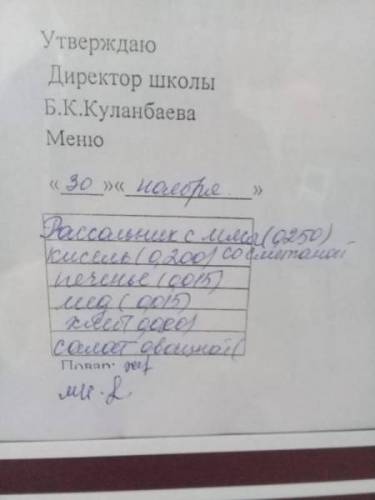 Утверждаю
Директор школы
Б.К.Куланбаева
Меню
«30»«ноября»
Рассольник с мясо (0,250)
кисель (0,200) со сметаной
печенье (0,015)
мед (0,015)
хлеб
салат овощной (
Повар: